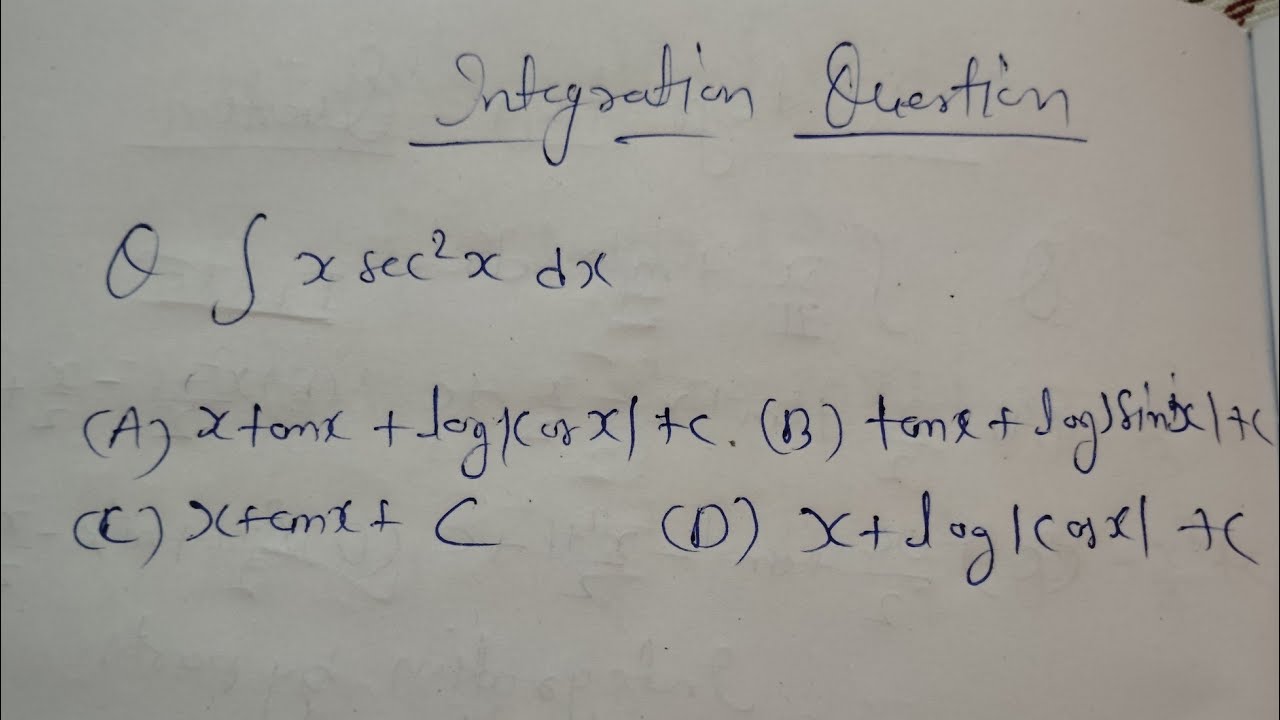 Integration Question
Q ∫ x sec²x dx
(A) x tanx + log|cosx| + c. (B) tanx + log|sinx| + c
(C) x tanx + C (D) x + log|cosx| + c